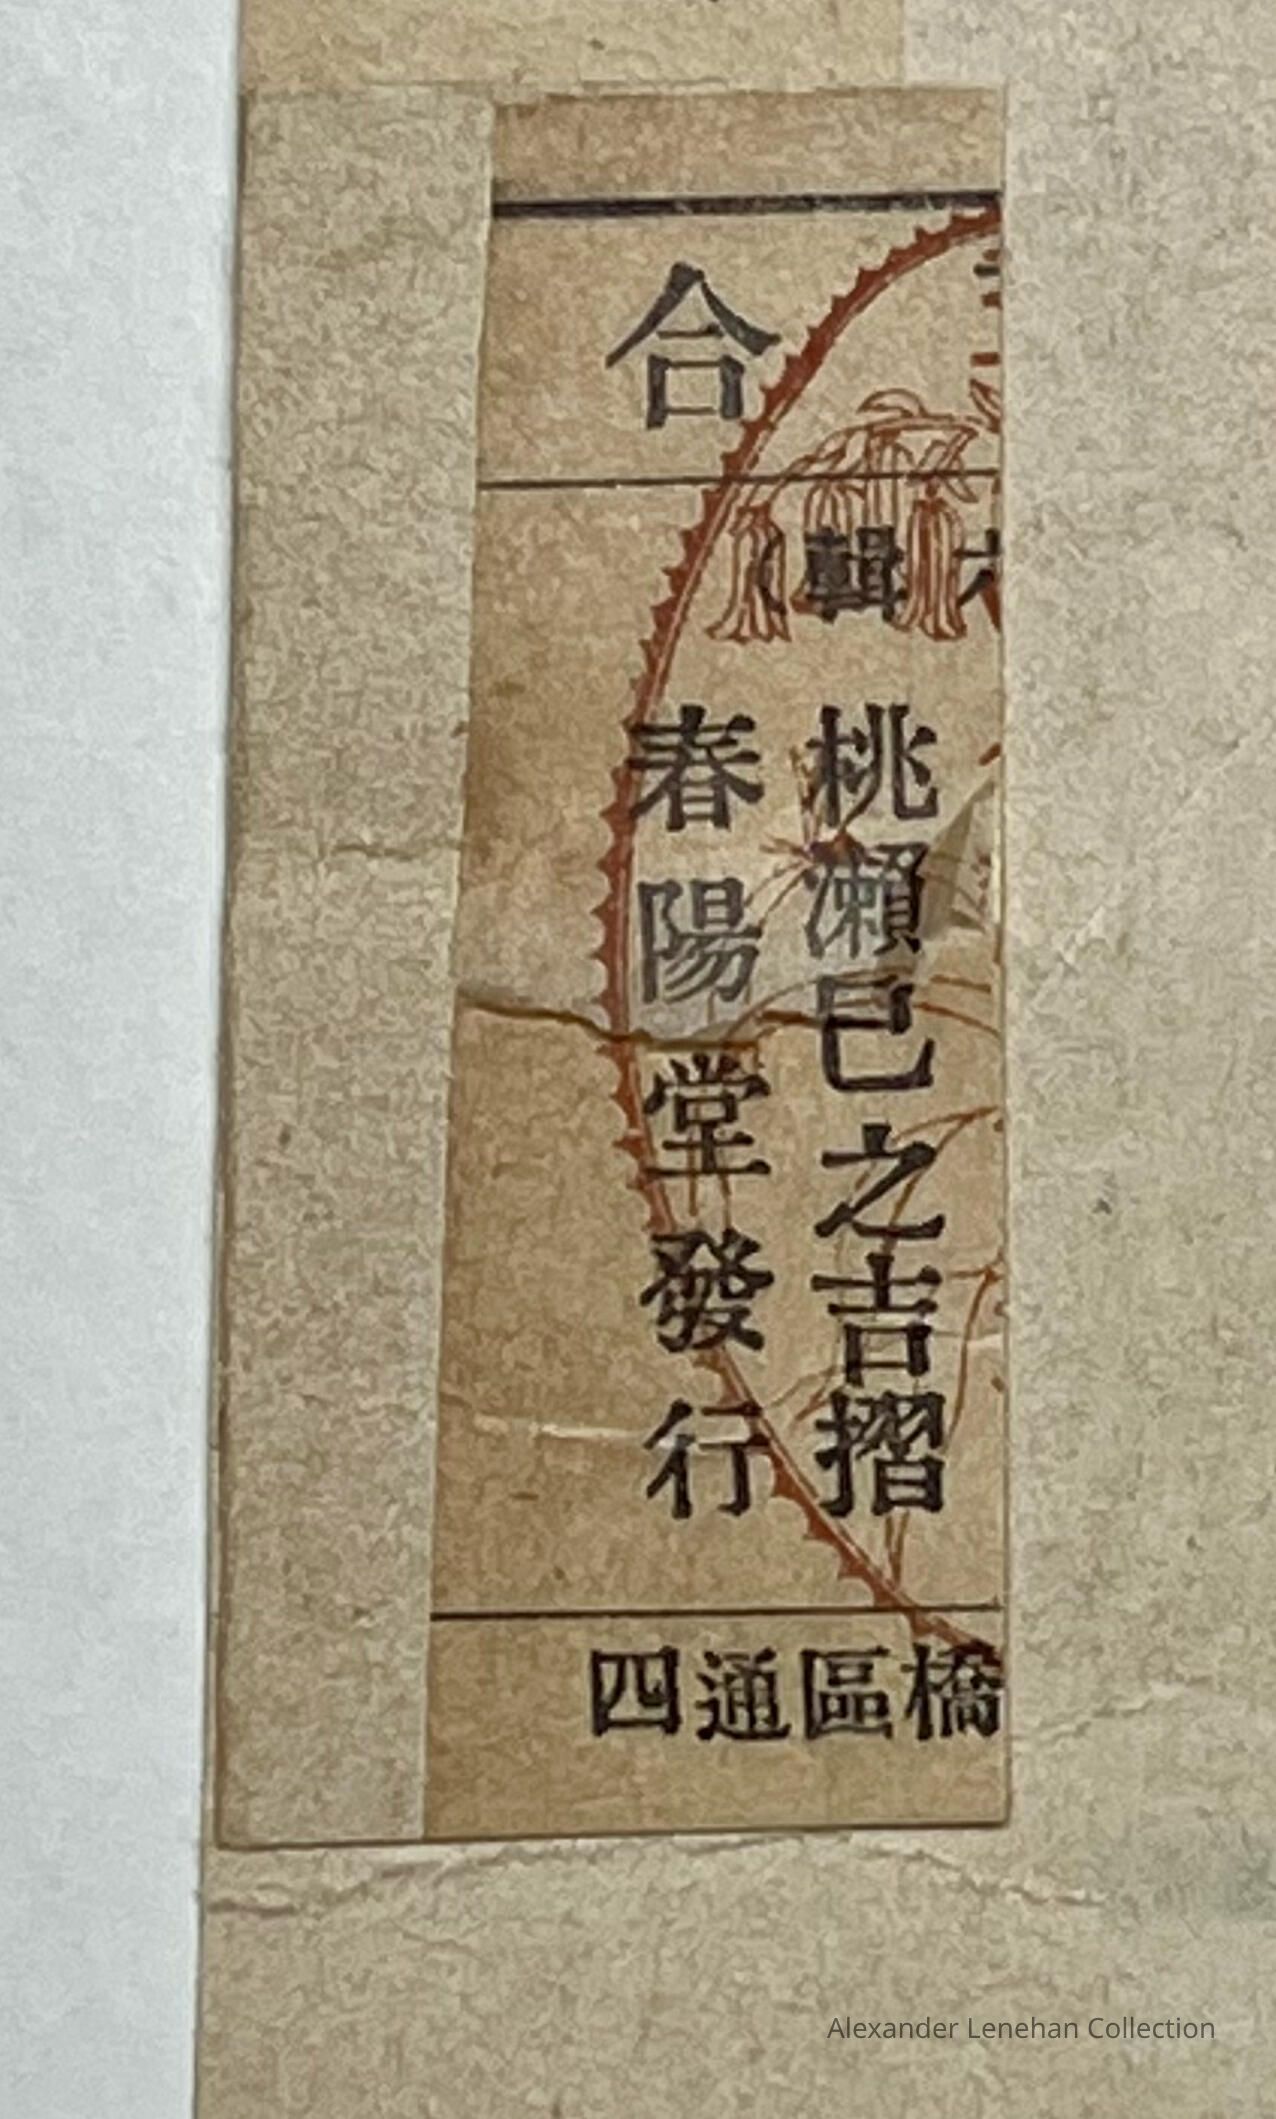 合
輯
桃瀬巳之吉摺
春陽堂發行
橋區通四
Alexander Lenehan Collection